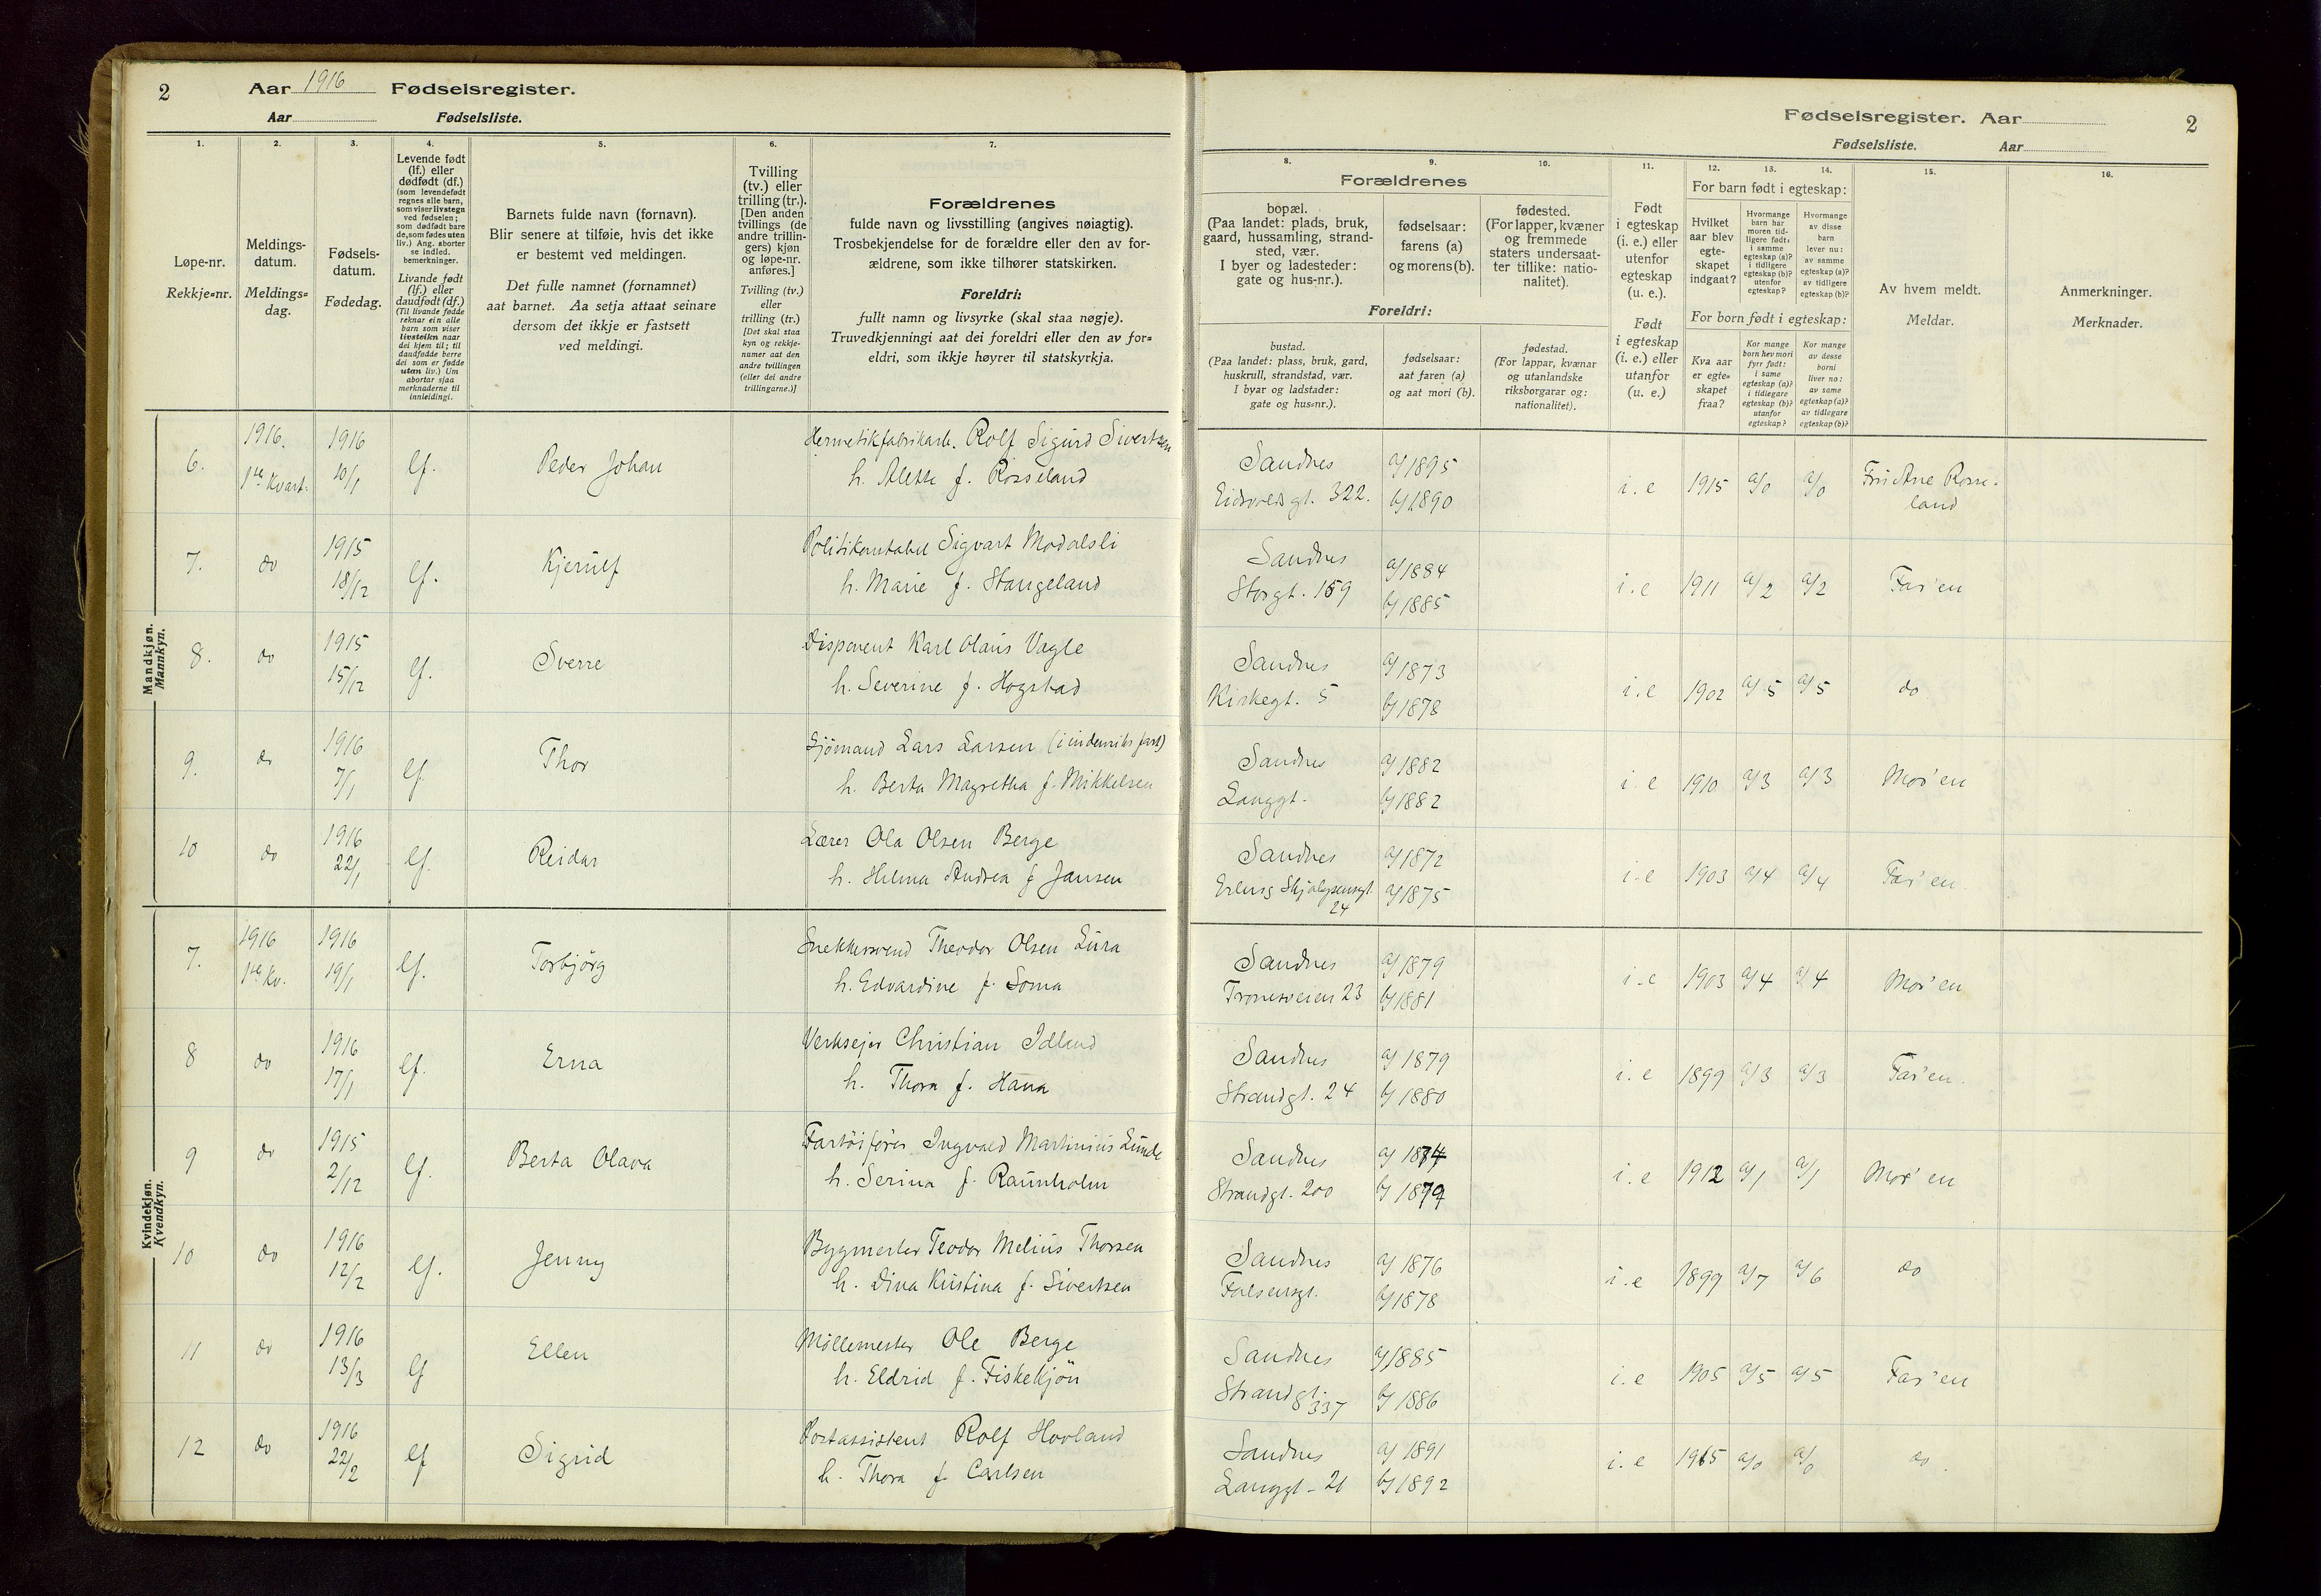 2
Aar 1916 Fødselsregister.
Aar Fødselsliste.
1.
2.
3.
4.
5.
6.
7.
Løpe-nr.
Rekkje=nr.
Meldings-
datum.
Meldings=
dag.
Fødsels-
datum.
Fødedag.
Levende født
(lf.) eller
dødfødt (df.)
(som levendefødt
regnes alle barn,
som viser livstegn
ved fødselen;
som dødfødt bare
de, som fødes uten
liv.) Ang. aborter
se indled.
bemerkninger.
Livande født
(lf.) eller
daudfødt (df.)
(Til livande fødde
reknar ein alle
barn som viser
livsteikn naar
dei kjem til; til
daudfødde berre
dei som er fødde
utan liv.) Um
abortar sjaa
merknaderne til
innleidingi.
Barnets fulde navn (fornavn).
Blir senere at tilføie, hvis det ikke
er bestemt ved meldingen.
Det fulle namnet (fornamnet)
aat barnet. Aa setja attaat seinare
dersom det ikkje er fastsett
ved meldingi.
Tvilling
(tv.) eller
trilling (tr.).
[Den anden
tvillings (de
andre trillin-
gers) kjøn
og løpe-nr.
anføres.]
Tvilling (tv.)
eller
trilling (tr.)
[Det skal staa
kyn og rekkje-
numer aat den
andre tvillingen
(eller dei andre
trillingarne.)]
Forældrenes
fulde navn og livsstilling (angives nøiagtig).
Trosbekjendelse for de forældre eller den av for-
ældrene, som ikke tilhører statskirken.
Foreldri:
fullt namn og livsyrke (skal staa nøgje).
Truvedkjenningi aat dei foreldri eller den av for=
eldri, som ikkje høyrer til statskyrkja.
Mandkjøn.
Mannkyn.
6. 1916. 1ste Kvart. 1916 10/1 lf. Peder Johan
Hermetikfabrikarb. Rolf Sigurd Sivertsen
h. Alette f. Rosseland
7. do 1915 18/12 lf. Kjerulf
Politikonstabel Sigvart Modalsli
h. Marie f. Stangeland
8. do 1915 15/12 lf. Sverre
Disponent Karl Olaus Vagle
h. Severine f. Hogstad
9. do 1916 7/1 lf. Thor
Sjömand Lars Larsen (i indenriks fart)
h. Berta Magretha f. Mikkelsen
10 do 1916 22/1 lf. Reidar
Lærer Ola Olsen Berge
h. Helma Andrea f Jansen
Kvindekjøn.
Kvendkyn.
7. 1916 1ste Kv. 1916 19/1 lf. Torbjörg
Snekkersvend Theodor Olsen Lura
h. Edvardine f. Soma
8 do 1916 17/1 lf. Erna
Verksejer Christian Idland
h. Thora f. Hana
9 do 1915 2/12 lf. Berta Olava
Fartöisförer Ingvald Martinius Lunde
h. Serina f. Raunholm
10 do 1916 12/2 lf. Jenny
Bygmester Teodor Melius Thorsen
h. Dina Kristina f. Sivertsen
11 do 1916 13/3 lf Ellen
Möllemester Ole Berge
h. Eldrid f. Fiskekjön
12 do 1916 22/2 lf Sigrid
Postassistent Rolf Hovland
h. Thora f. Carlsen
Fødselsregister. Aar 2
Fødselsliste. Aar
8.
9.
10.
11.
12.
13.
14.
15.
16.
Forældrenes
bopæl.
(Paa landet: plads, bruk,
gaard, hussamling, strand-
sted, vær.
I byer og ladesteder:
gate og hus-nr.).
fødselsaar:
farens (a)
og morens (b).
fødested.
(For lapper, kvæner
og fremmede
staters undersaat-
ter tillike: natio-
nalitet).
Foreldri:
bustad.
(Paa landet: plass, bruk, gard,
huskrull, strandstad, vær.
I byar og ladstader:
gate og hus=nr.).
fødselsaar:
aat faren (a)
og aat mori (b).
fødestad.
(For lappar, kvænar
og utanlandske
riksborgarar og:
nationalitet).
Født
i egteskap
(i. e.) eller
utenfor
egteskap
(u. e.).
Født
i egteskap
(i. e.) eller
utanfor
(u. e.)
For barn født i egteskap:
Hvilket
aar blev
egte-
skapet
indgaat?
Hvormange
barn har
moren tid-
ligere født:
i samme
egteskap (a)?
i tidligere
egteskap (b)?
utenfor
egteskap?
Hvormange
av disse
barn
lever nu:
av samme
egteskap (a)?
av tidligere
egteskap (b)?
For born født i egteskap:
Kva aar
er egte-
skapet
fraa?
Kor mange
born hev mori
fyrr født:
i same
egteskap (a)?
i tidlegare
egteskap (b)?
utanfor
egteskap?
Kor mange
av desse
borni
liver no:
av same
egteskap (a)?
av tidlegare
egteskap (b)?
Av hvem meldt.
Meldar.
Anmerkninger.
Merknader.
Sandnes a/1895 i. e 1915 a/0 a/0 Fru Ane Rosse-
Eidsvoldsgt. 322. b/1890 land
Sandnes a/1884 i. e 1911 a/2 a/2 Far'en
Storgt. 159 b/1885
Sandnes a/1873 i. e 1902 a/5 a/5 do
Kirkegt. 5 b/1878
Sandnes a/1882 i. e 1910 a/3 a/3 Mor'en
Langgt. b/1882
Sandnes a/1872 i. e 1903 a/4 a/4 Far'en
Erling Skjalgsensgt 24 a/1875
Sandnes a/1879 i. e 1903 a/4 a/4 Mor'en
Tronesveien 23 b/1881
Sandnes a/1879 i. e 1899 a/3 a/3 Far'en.
Strandgt. 24 b/1880
Sandnes a/1874 i. e 1912 a/1 a/1 Mor'en
Strandgt. 200 b/1879
Sandnes a/1876 i. e 1899 a/7 a/6 do
Falsensgt. b/1878
Sandnes a/1885 i. e 1905 a/5 a/5 Far'en
Strandgt. 337 b/1886
Sandnes a/1891 i. e 1915 a/0 a/0 do.
Langgt - 21 b/1892